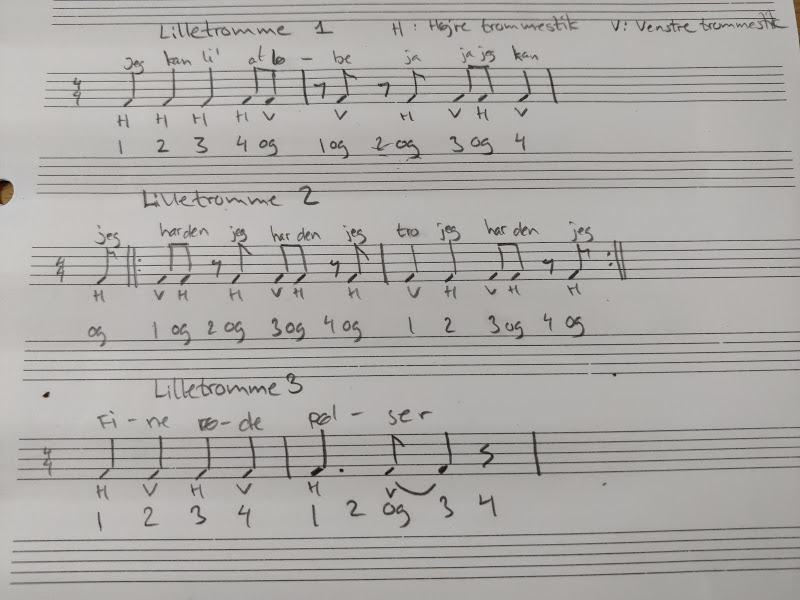 Lilletromme 1 H: Højre trommestik V: Venstre trommestik
jeg kan li' at lø - be ja ja jeg kan
4/4
H H H H V V H V H V
1 2 3 4 og 1 og 2 og 3 og 4
Lilletromme 2
jeg har den jeg har den jeg tro jeg har den jeg
4/4
H V H H V H H V H V H H
og 1 og 2 og 3 og 4 og 1 2 3 og 4 og
Lilletromme 3
Fi - ne rø - de pøl - ser
4/4
H V H V H V
1 2 3 4 1 2 og 3 4